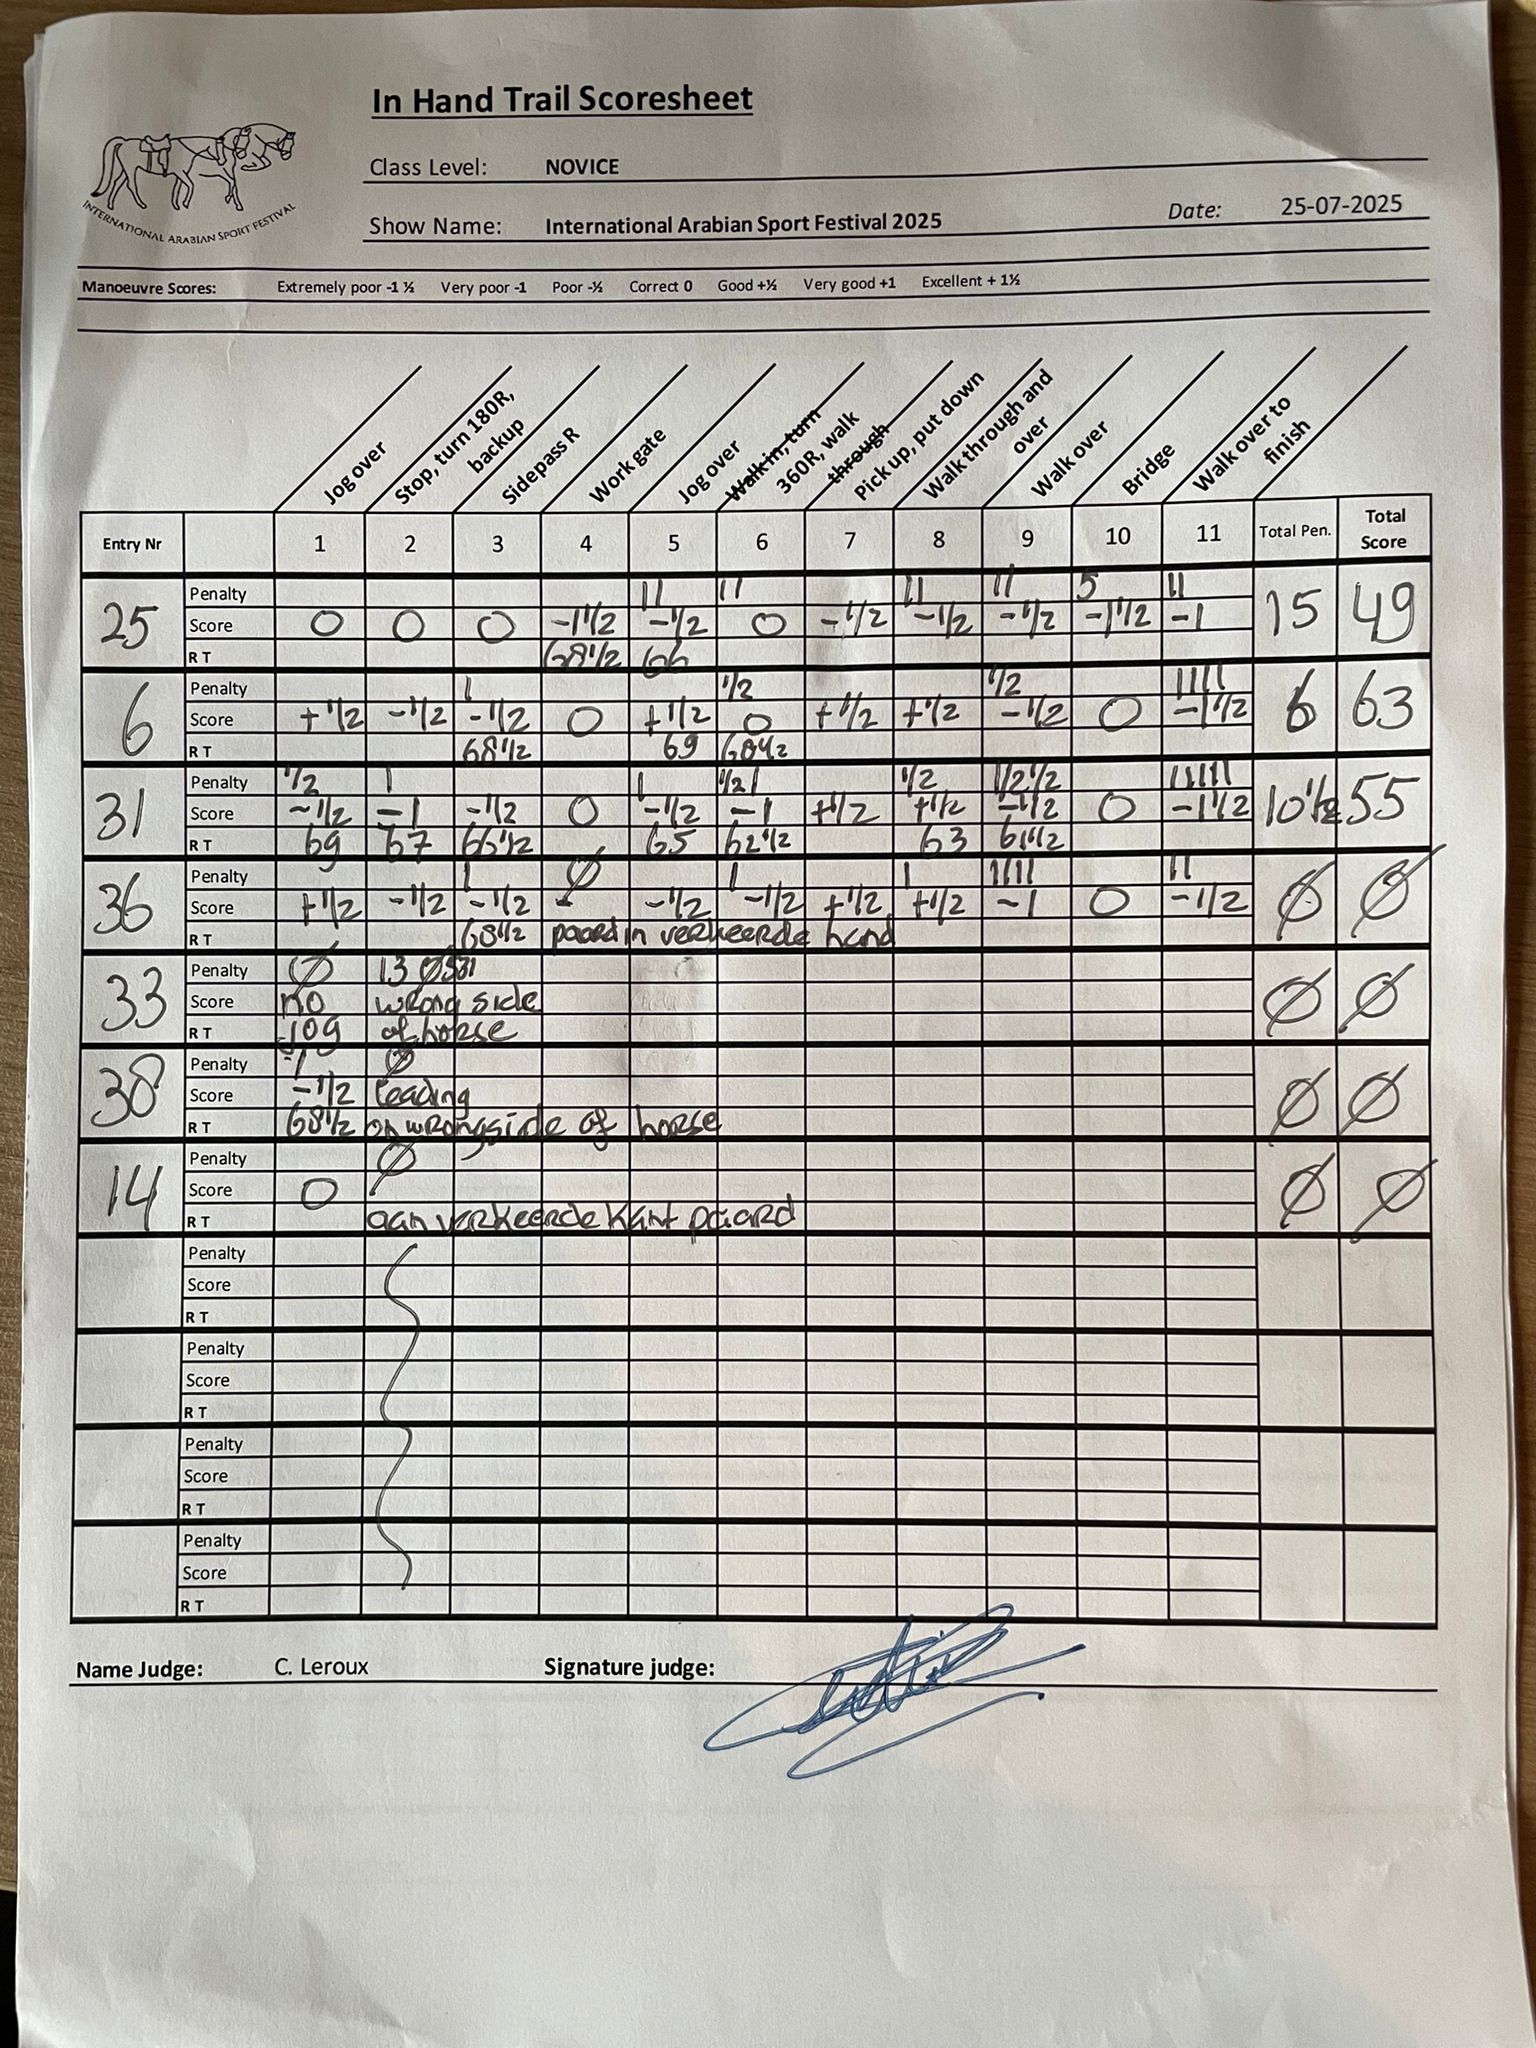 In Hand Trail Scoresheet
INTERNATIONAL ARABIAN SPORT FESTIVAL
Class Level: NOVICE
Show Name: International Arabian Sport Festival 2025 Date: 25-07-2025
Manoeuvre Scores: Extremely poor -1 ½ Very poor -1 Poor -½ Correct 0 Good +½ Very good +1 Excellent + 1½
Jog over
Stop, turn 180R, backup
Sidepass R
Work gate
Jog over
Walk in, turn 360R, walk through
Pick up, put down
Walk through and over
Walk over
Bridge
Walk over to finish
Entry Nr 1 2 3 4 5 6 7 8 9 10 11 Total Pen. Total Score
25 15 49
Penalty 11 11 11 11 5 11
Score 0 0 0 -1 1/2 -1/2 0 -1/2 -1/2 -1/2 -1 1/2 -1
R T 68 1/2 66
6 6 63
Penalty 1 1/2 1/2 1111
Score +1/2 -1/2 -1/2 0 +1/2 0 +1/2 +1/2 -1/2 0 -1 1/2
R T 68 1/2 69 68 1/2
31 10 1/2 55
Penalty 1/2 1 1 1/2 1 1/2 1/2 1/2 11111
Score -1/2 -1 -1/2 0 -1/2 -1 +1/2 +1/2 -1/2 0 -1 1/2
R T 69 67 66 1/2 65 62 1/2 63 61 1/2
36 Ø Ø
Penalty 1 Ø 1 1 1111 11
Score +1/2 -1/2 -1/2 - -1/2 -1/2 +1/2 +1/2 -1 0 -1/2
R T 68 1/2 paard in verkeerde hand
33 Ø Ø
Penalty Ø 13
Score no wrong side
R T jog of horse
38 Ø Ø
Penalty 1 Ø
Score -1/2 leading
R T 68 1/2 on wrong side of horse
14 Ø Ø
Penalty Ø
Score 0
R T aan verkeerde kant paard
Penalty
Score
R T
Penalty
Score
R T
Penalty
Score
R T
Penalty
Score
R T
Name Judge: C. Leroux Signature judge: